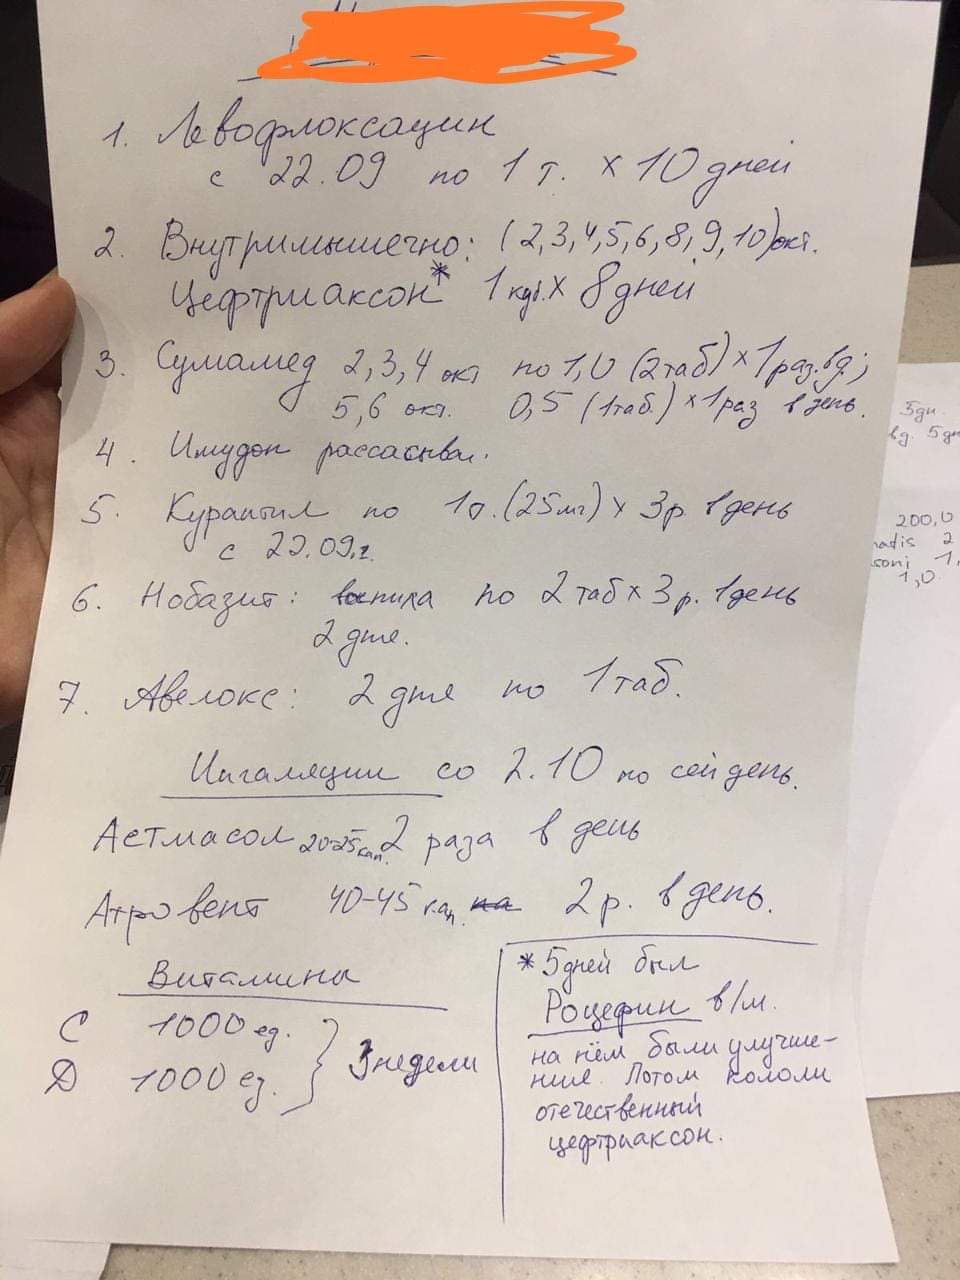 1. Левофлоксацин
с 22.09 по 1 т. x 10 дней
2. Внутримышечно: (2,3,4,5,6,8,9,10) окт.
Цефтриаксон* 1 куб. x 8 дней
3. Сумамед 2,3,4 окт по 1,0 (2 таб) x 1 раз. в д;
5,6 окт. 0,5 (1 таб.) x 1 раз в день.
4. Имудон рассасывал.
5. Курантил по 1т. (25 мг) x 3 р. в день
с 29.09.
6. Нобазит: выпила по 2 таб x 3 р. в день
2 дня.
7. Авелокс: 2 дня по 1 таб.
Ингаляции со 2.10 по сей день.
Астмасол 20-25 кап. 2 раза в день
Атровент 40-45 кап. 2 р. в день.
Витамины
С 1000 ед.
Д 1000 ед.
3 недели
* 5 дней был
Роцефин в/м.
на нём были улучше-
ния. Потом кололи
отечественный
цефтриаксон.
5 дн.
вд. 5 дн
200,0
2
1,
1,0